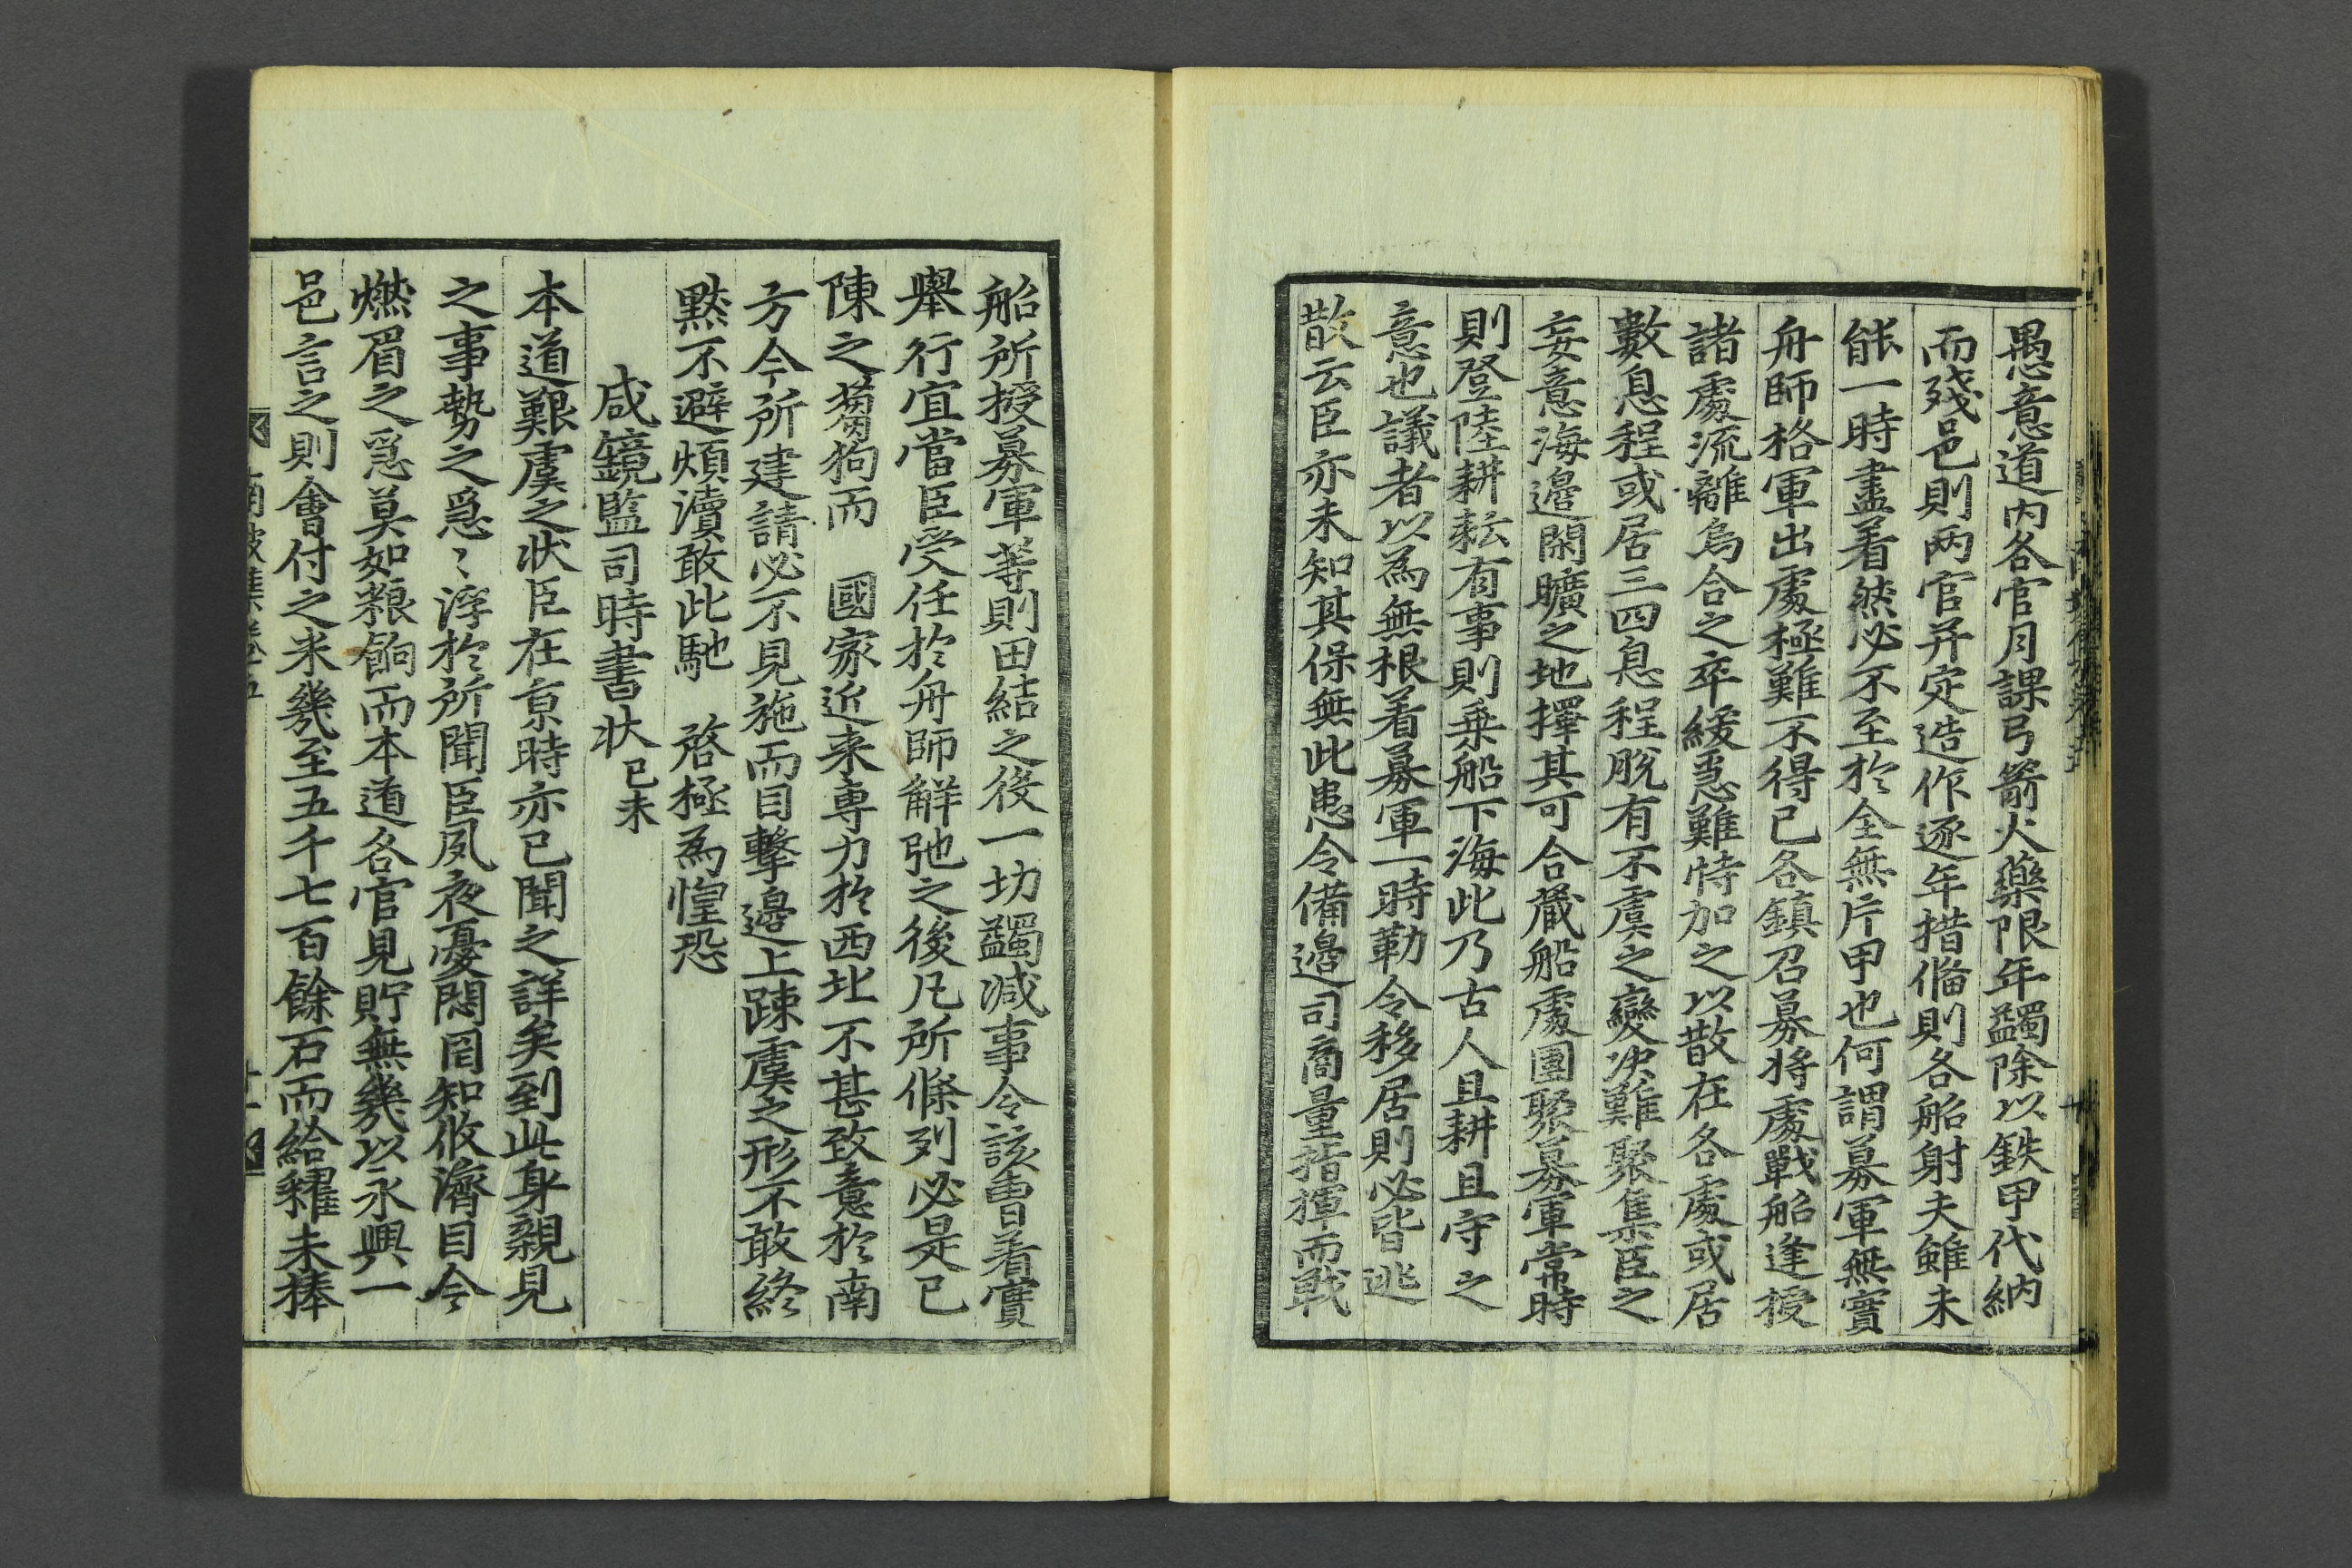 愚意道內各官月課弓箭火藥限年蠲除以鉄甲代納
而殘邑則兩官幷定造作逐年措偹則各船射夫雖未
能一時盡着然必不至於全無片甲也何謂募軍無實
舟師格軍出處極難不得已各鎭召募將處戰船逢授
諸處流離烏合之卒緩急難恃加之以散在各處或居
數息程或居三四息程脫有不虞之變决難聚集臣之
妄意海邊閑曠之地擇其可合藏船處團聚募軍常時
則登陸耕耘有事則乗船下海此乃古人且耕且守之
意也議者以為無根着募軍一時勒令移居則必皆逃
散云臣亦未知其保無此患令備邊司商量指揮而戰
船所授募軍等則田結之後一切蠲减事令該曹着實
舉行宜當臣受任於舟師解弛之後凡所條列必是已
陳之蒭狗而 國家近来專力於西北不甚致意於南
方今所建請必不見施而目擊邊上踈虞之形不敢終
黙不避煩瀆敢此馳 啓極為惶恐
咸鏡監司時書狀己未
本道艱虞之状臣在京時亦已聞之詳矣到此身親見
之事勢之急〻浮於所聞臣夙夜憂悶罔知攸濟目今
燃眉之急莫如粮餉而本道各官見貯無幾以永興一
邑言之則會付之米幾至五千七百餘石而給糶未捧
南坡集卷之五